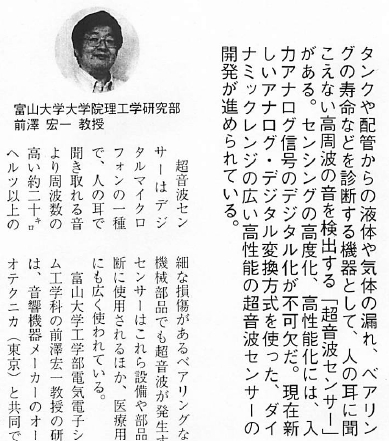 タンクや配管からの液体や気体の漏れ、ベアリン
グの寿命などを診断する機器として、人の耳に聞
こえない高周波の音を検出する「超音波センサー」
がある。センシングの高度化、高性能化には、入
力アナログ信号のデジタル化が不可欠だ。現在新
しいアナログ・デジタル変換方式を使った、ダイ
ナミックレンジの広い高性能の超音波センサーの
開発が進められている。
富山大学大学院理工学研究部
前澤 宏一 教授
超音波セン
サーはデジ
タルマイクロ
フォンの一種
で、人の耳で
聞き取れる音
より周波数の
高い約二十㌔
ヘルツ以上の
細な損傷があるベアリングな
機械部品でも超音波が発生す
センサーはこれら設備や部品
断に使用されるほか、医療用
にも広く使われている。
富山大学工学部電気電子シ
ム工学科の前澤宏一教授の研
は、音響機器メーカーのオー
オテクニカ（東京）と共同で